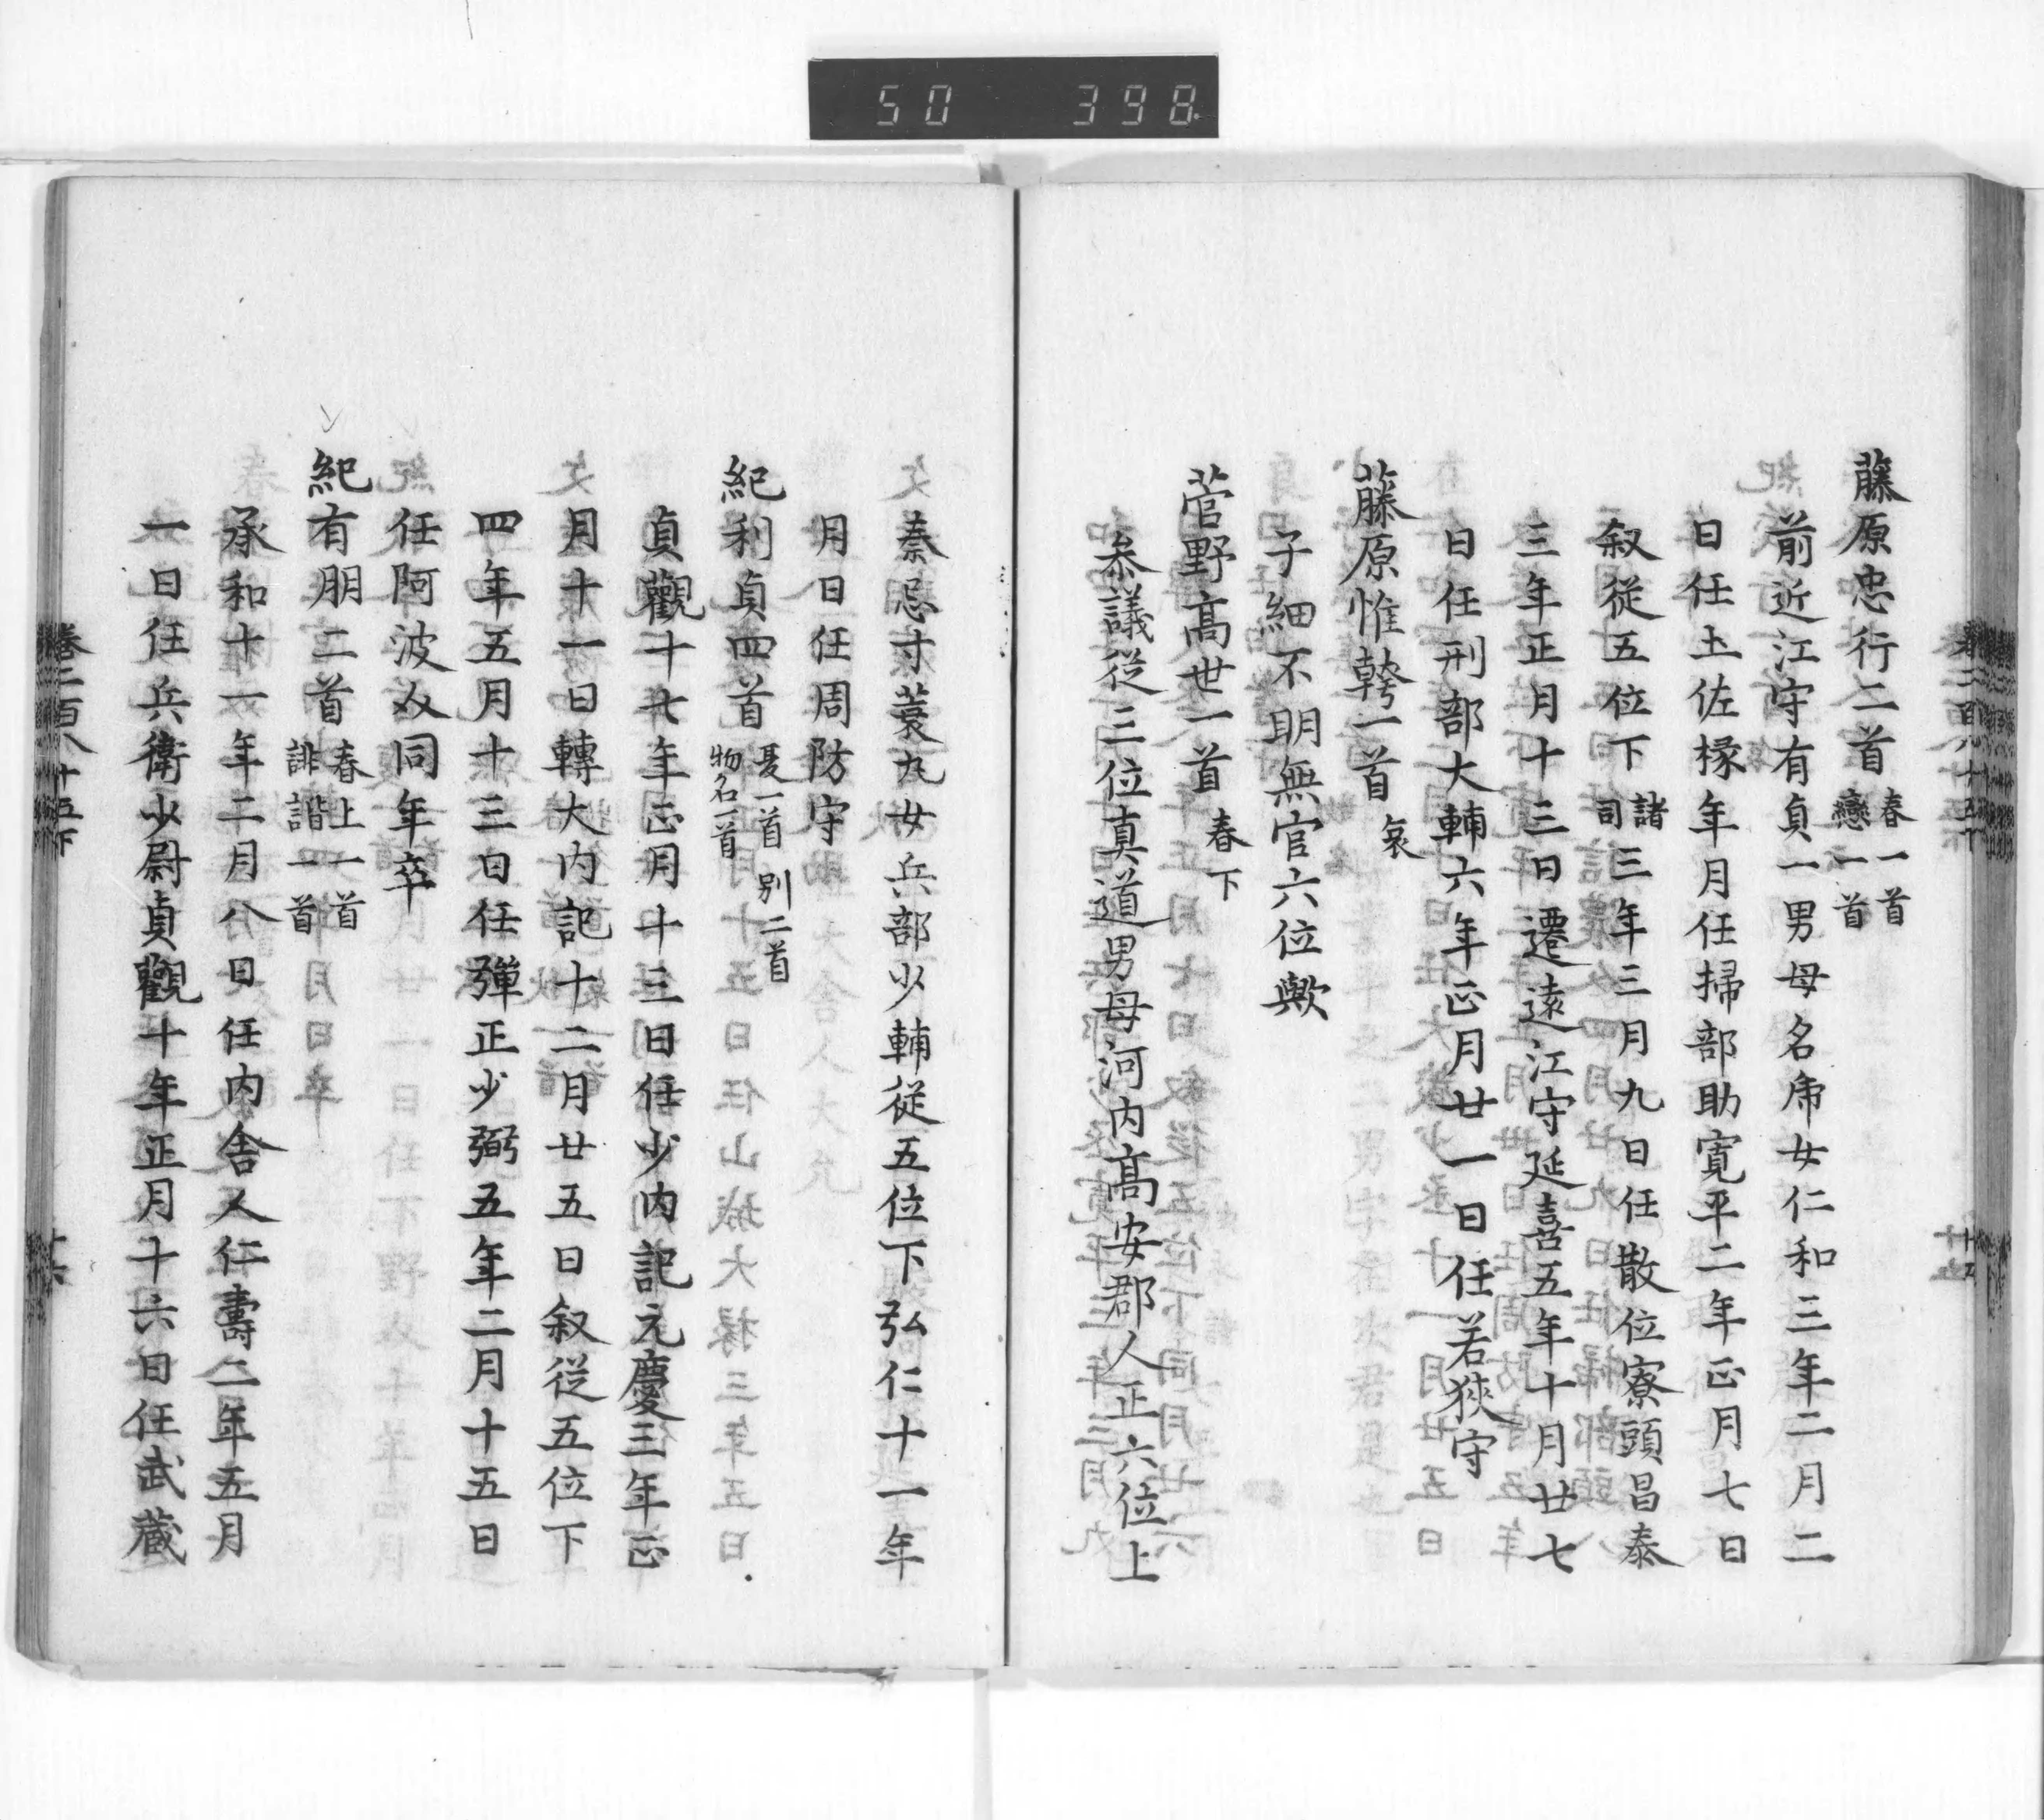 50 398
藤原忠行二首 春一首 戀一首
前近江守有貞一男母名席女仁和三年二月二
日任土佐掾年月任掃部助寛平二年正月七日
叙従五位下 諸司 三年三月九日任散位寮頭昌泰
三年正月十三日遷遠江守延喜五年十月廿七
日任刑部大輔六年正月廿一日任若狹守
藤原惟幹一首 哀
子細不明無官六位歟
菅野髙世一首 春下
叅議従三位真道男母河内髙安郡人正六位上
秦忌寸蓑丸女兵部少輔従五位下弘仁十一年
月日任周防守
紀利貞四首 夏一首 別二首 物名一首
貞觀十七年正月十三日任少内記元慶三年正
月十一日轉大内記十二月廿五日叙従五位下
四年五月十三日任彈正少弼五年二月十五日
任阿波介同年卒
紀有朋二首 春上一首 誹諧一首
承和十一年二月八日任内舎人仁壽二年五月
一日任兵衛少尉貞觀十年正月十六日任武蔵
卷二百八十五下